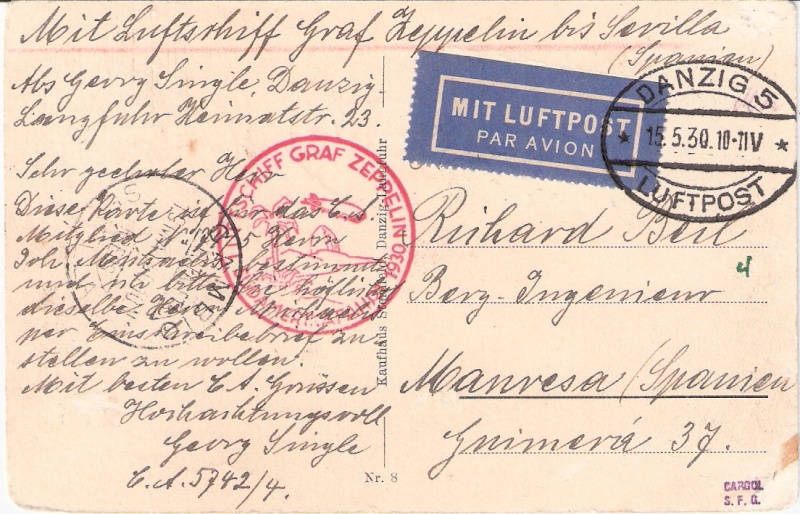 Mit Luftschiff Graf Zeppelin bis Sevilla
(Spanien)
Abs Georg Single, Danzig-
Langfuhr Heimatstr. 23.
Sehr geehrter Herr
Diese Karte ist für das C.A.
Mitglied Herrn
Joh bestimmt
und ich bitte Sie höflichst
dieselbe Herrn
per Einschreibebrief zu-
stellen zu wollen.
Mit besten C.A. Grüssen
Hochachtungsvoll
Georg Single
C.A. 5742/4.
LUFTSCHIFF GRAF ZEPPELIN
1930
Kaufhaus Danzig-Langfuhr
Nr. 8
MIT LUFTPOST
PAR AVION
DANZIG 5
* 15.5.30.10-11V *
LUFTPOST
Richard Beil
4
Berg-Ingenieur
Manresa (Spanien
Guimerá 37.
CARGOL
S. F. G.